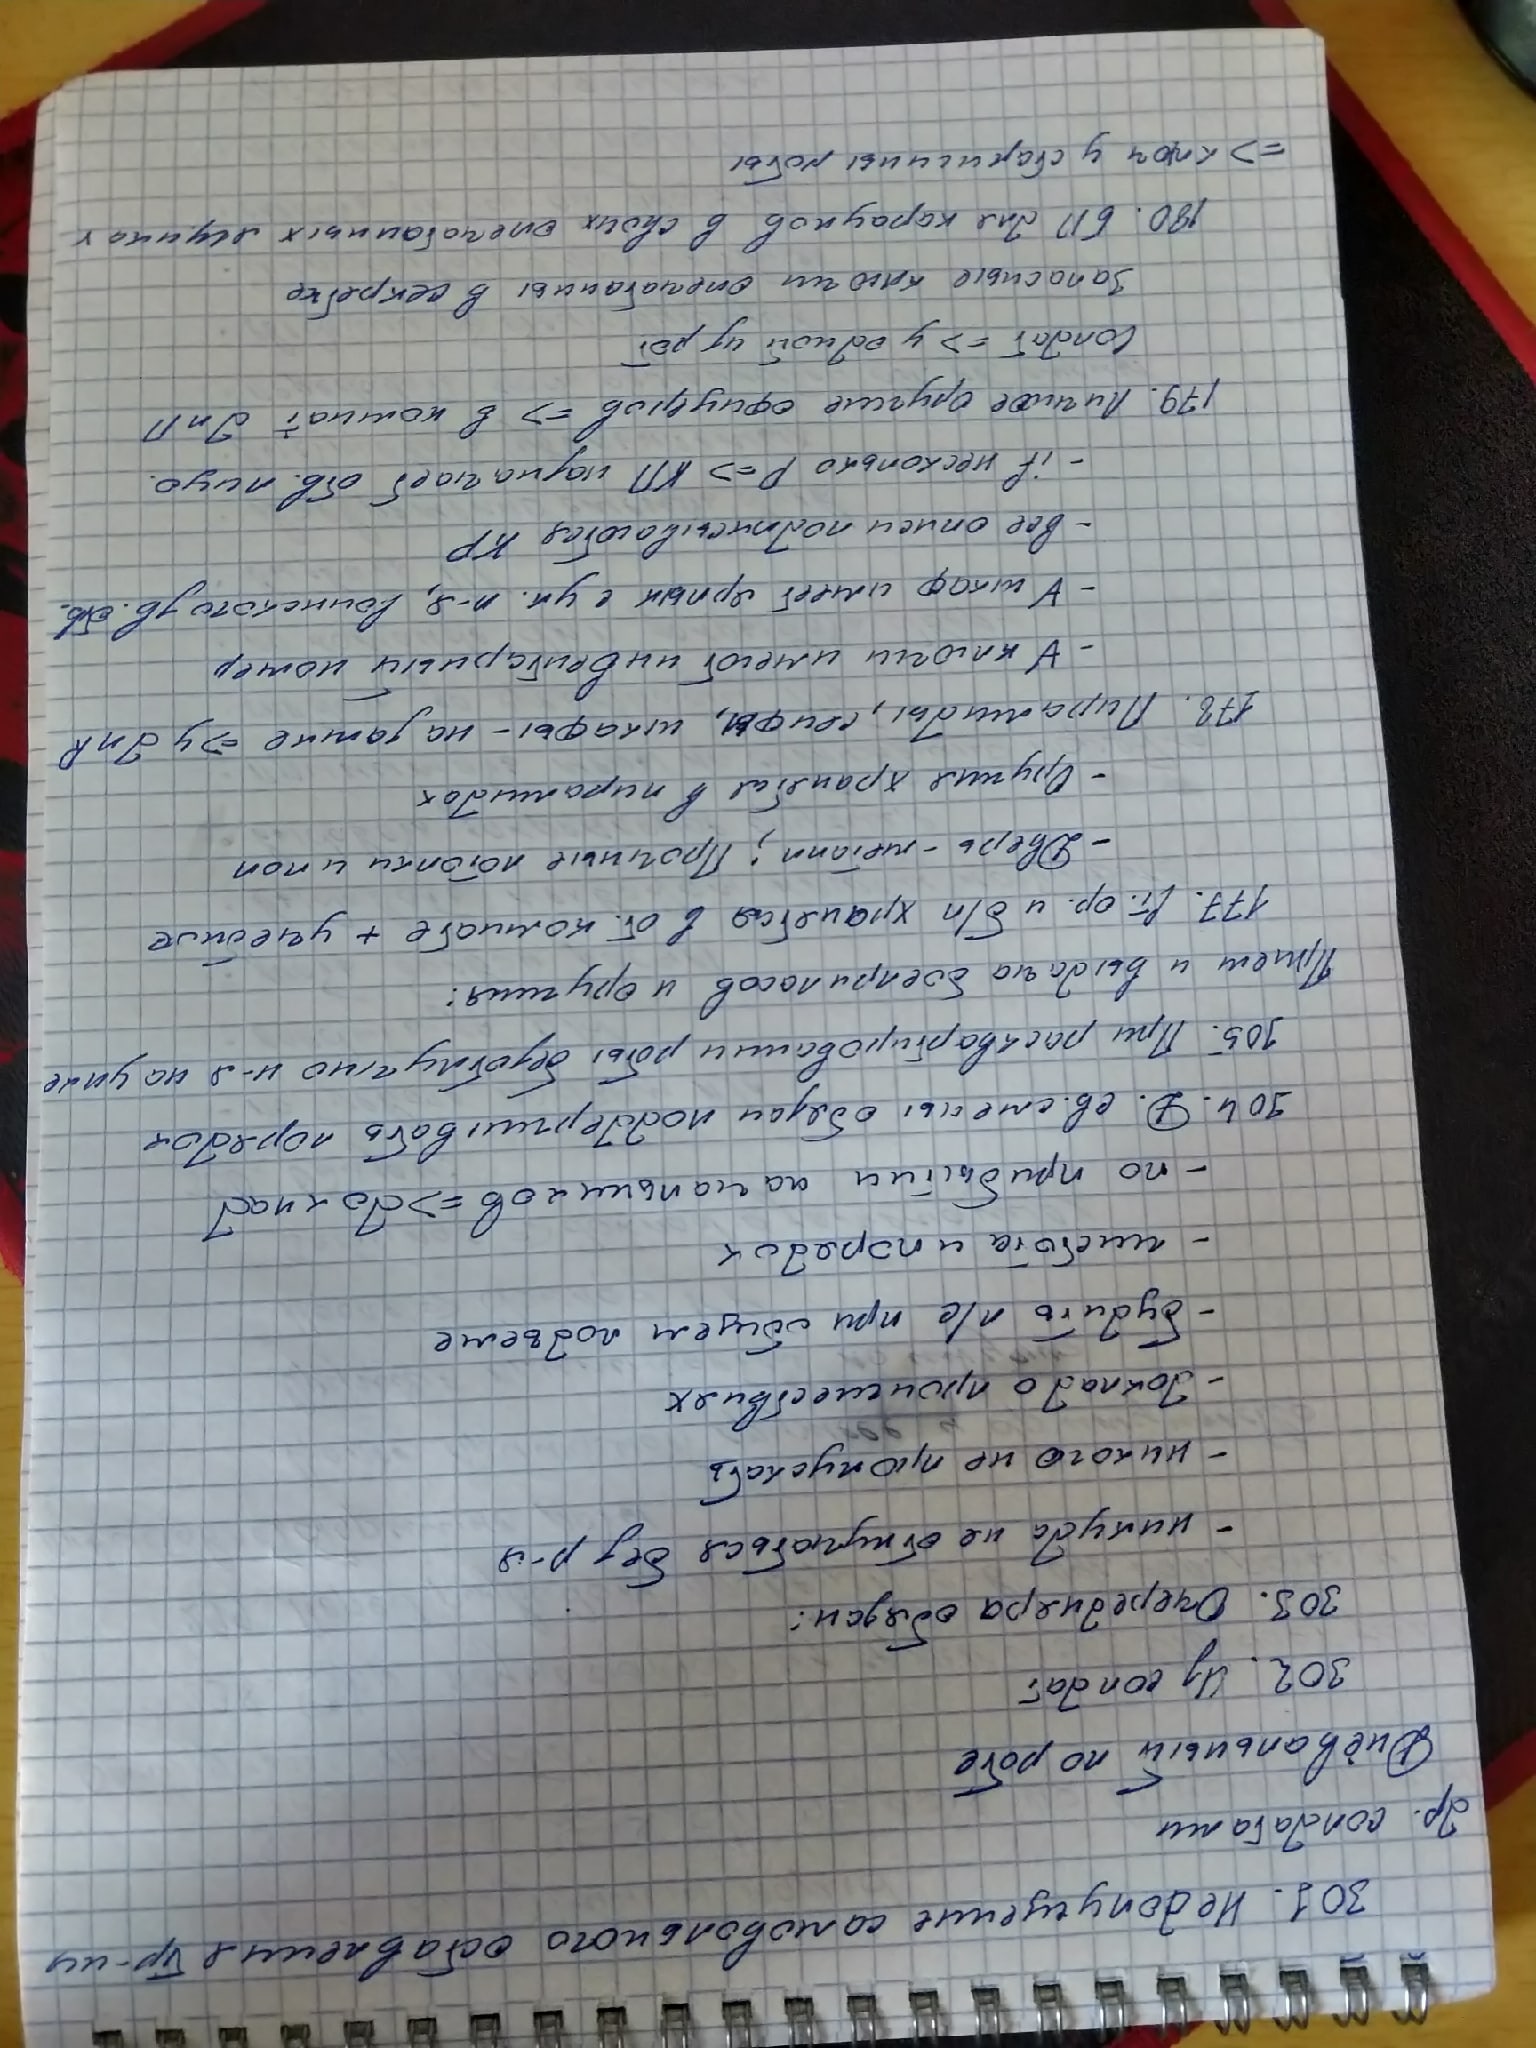 301. Недопущение самовольного оставления тр-ии
др. солдатами
Дневальный по роте
302. Из солдат
303. Очередняра обязан:
- никуда не отлучаться без р-я
- никого не пропускать
- доклад о происшествиях
- будить л/с при общем подъеме
- чистота и порядок
- по прибытии начальников => доклад
304. Д. св. смены обязан поддерживать порядок
305. При расквартировании роты безотлучно н-я на улице
Прием и выдача боеприпасов и оружия:
177. Ст. ор. и б/п хранятся в от. комнате + учебные
- Дверь - металл; Прочные потолки и пол
- Оружия хранятся в пирамидах
178. Пирамиды, сейфы, шкафы - на замке => у ДпR
- ∀ ключи имеют инвентарный номер
- ∀ шкаф имеет ярлык с ук. п-я, воинского зв. отв.
- все описи подписываются КР
- if несколько Р => КП назначает отв. лицо.
179. Личное оружие офицеров => в комнат. ДпП
Солдат => у одной из рот
Запасные ключи опечатанны в секретке
180. БП для караулов в своих опечатанных ящиках
=> ключ у старшины роты